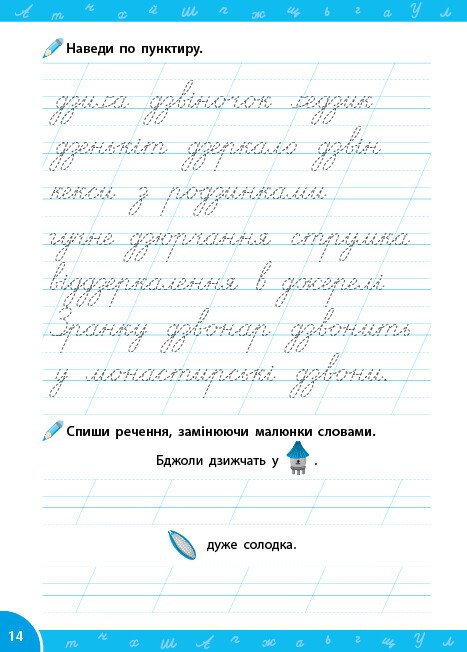 Наведи по пунктиру.
дзиґа дзвіночок ґедзик
дзенькіт дзеркало дзвін
кекси з родзинками
гучне дзюрчання струмка
віддзеркалення в джерелі
Зранку дзвонар дзвонить
у монастирські дзвони.
Спиши речення, замінюючи малюнки словами.
Бджоли дзижчать у .
дуже солодка.
14